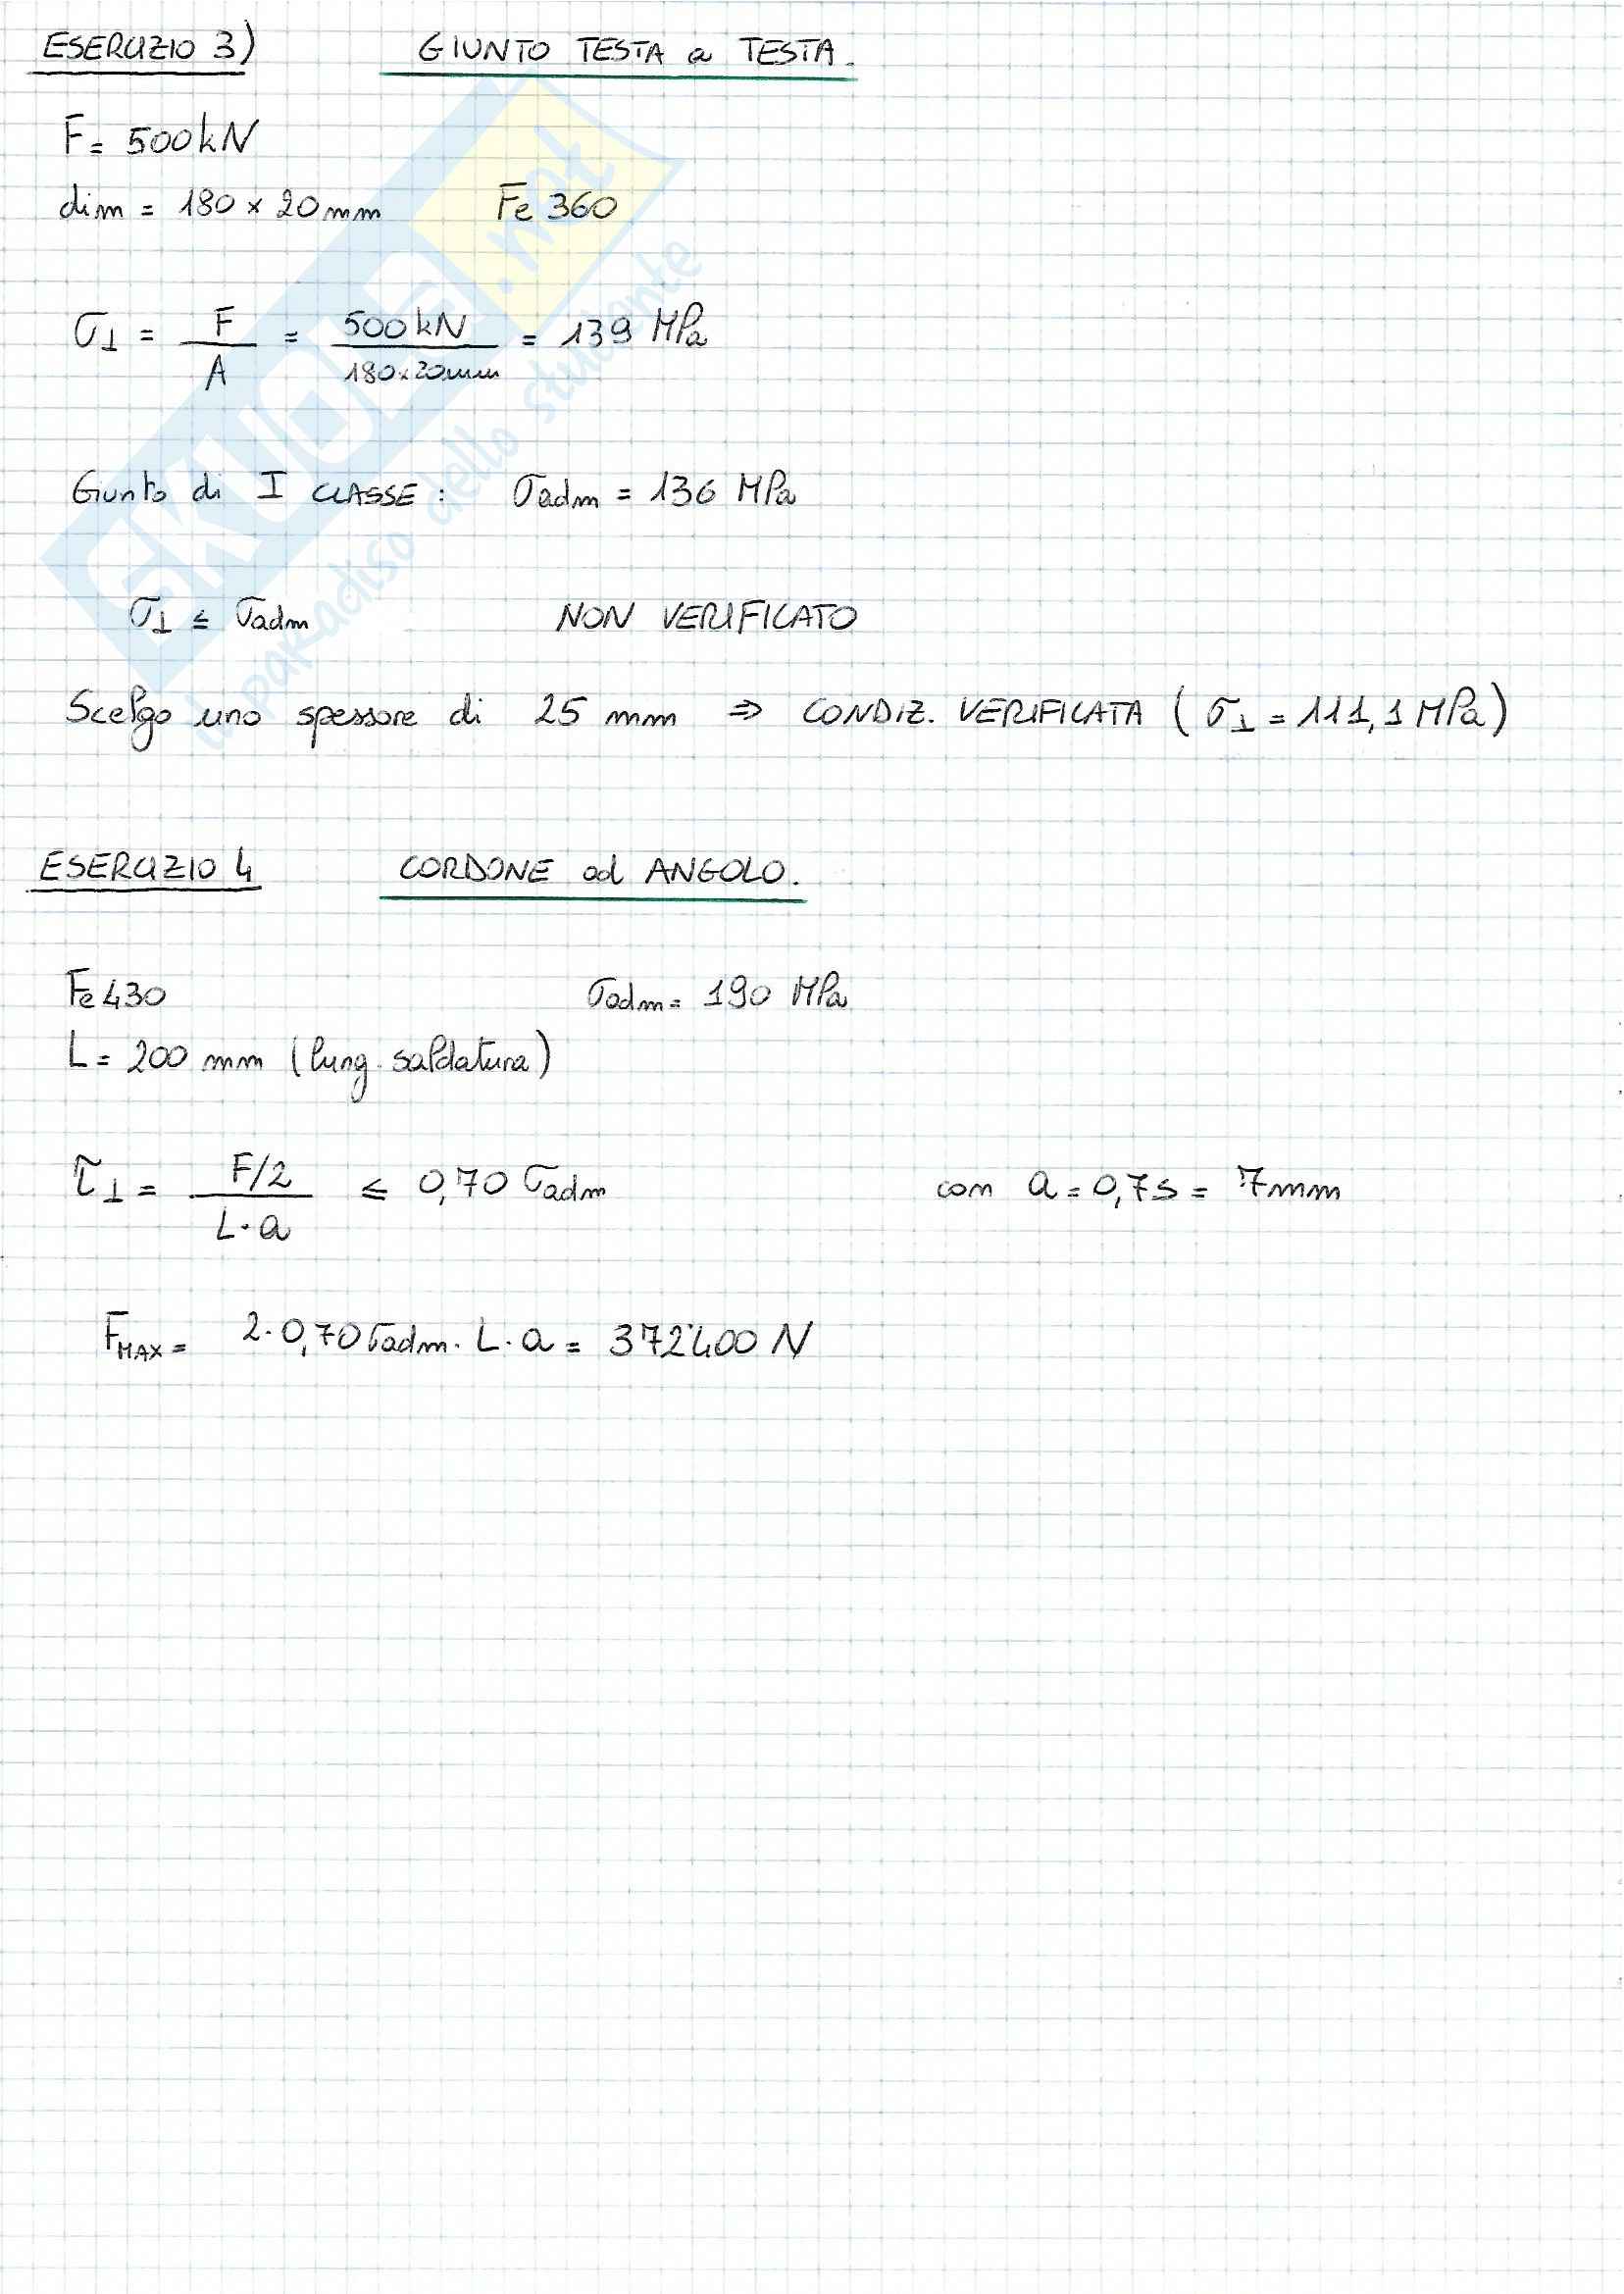 ESERCIZIO 3) GIUNTO TESTA a TESTA.
F = 500 kN
dim = 180 x 20 mm Fe 360
σ⊥ = F / A = 500 kN / 180 x 20 mm = 139 MPa
Giunto di I CLASSE : σadm = 136 MPa
σ⊥ ≤ σadm NON VERIFICATO
Scelgo uno spessore di 25 mm ⇒ CONDIZ. VERIFICATA ( σ⊥ = 111,1 MPa )
ESERCIZIO 4 CORDONE ad ANGOLO.
Fe 430 σadm = 190 MPa
L = 200 mm (lung. saldatura)
τ⊥ = F/2 / L·a ≤ 0,70 σadm con a = 0,7s = 7mm
FMAX = 2·0,70 σadm · L·a = 372'400 N
SKUOLA.net
il paradiso dello studente